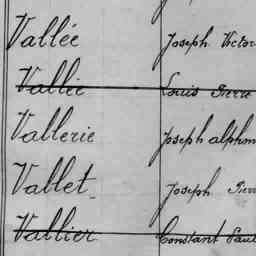 Vallée Joseph Victor
Vallée Louis Pierre
Vallerie Joseph alphon
Vallet Joseph Pierr
Vallier Constant Paul